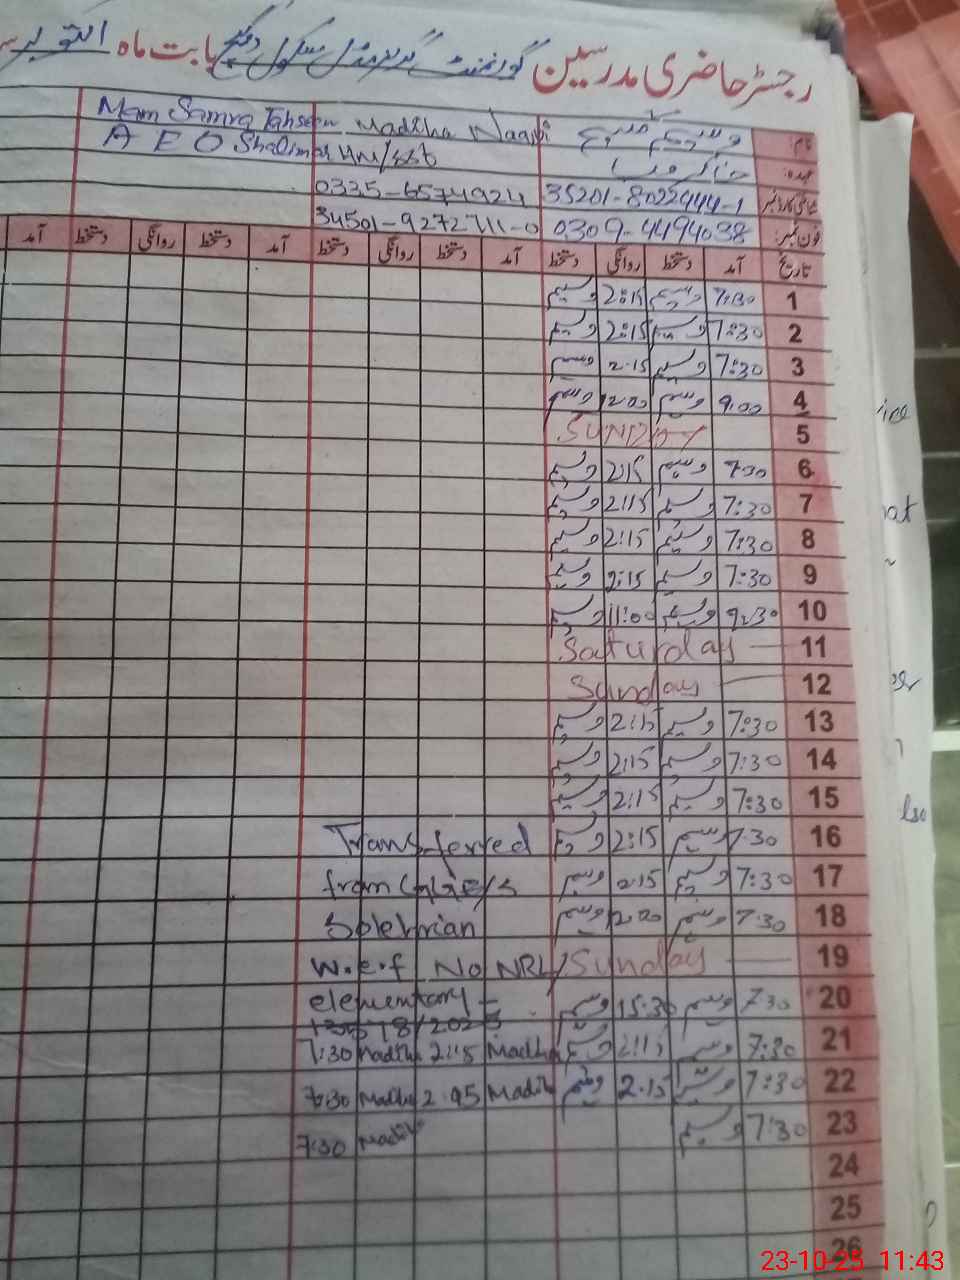 رجسٹر حاضری مدرسین گورنمنٹ گرلز مڈل سکول بابت ماہ اکتوبر
نام: وسیم مسیح Madiha Naqvi Mam Samra Tahseen
عہدہ: خاکروب HM/SST A E O Shalimar
شناختی کارڈ نمبر 35201-8022444-1 0335-6574924
فون نمبر: 0309-4494038 34501-9272711-0
تاریخ آمد دستخط روانگی دستخط آمد دستخط روانگی دستخط آمد دستخط روانگی دستخط آمد
1 7:30 وسیم 2:15 وسیم
2 7:30 وسیم 2:15 وسیم
3 7:30 وسیم 2.15 وسیم
4 9:00 وسیم 12:00 وسیم
5 SUNDAY
6 7:30 وسیم 2:15 وسیم
7 7:30 وسیم 2:15 وسیم
8 7:30 وسیم 2:15 وسیم
9 7:30 وسیم 2:15 وسیم
10 9:30 وسیم 11:00 وسیم
11 Saturday
12 Sunday
13 7:30 وسیم 2:15 وسیم
14 7:30 وسیم 2:15 وسیم
15 7:30 وسیم 2:15 وسیم
16 7:30 وسیم 2:15 وسیم Transferred
17 7:30 وسیم 2.15 وسیم from GGE/S
18 7:30 وسیم 12:00 وسیم Solehrian
19 Sunday w.e.f No NRL/
20 7:30 وسیم 15:30 وسیم elementary -
18/2025
21 7:30 وسیم 2:15 وسیم Madiha 2:15 Madiha 7:30
22 7:30 وسیم 2.15 وسیم Madiha 2.45 Madiha 7:30
23 7:30 وسیم Madiha 7:30
24
25
26
23-10-25 11:43